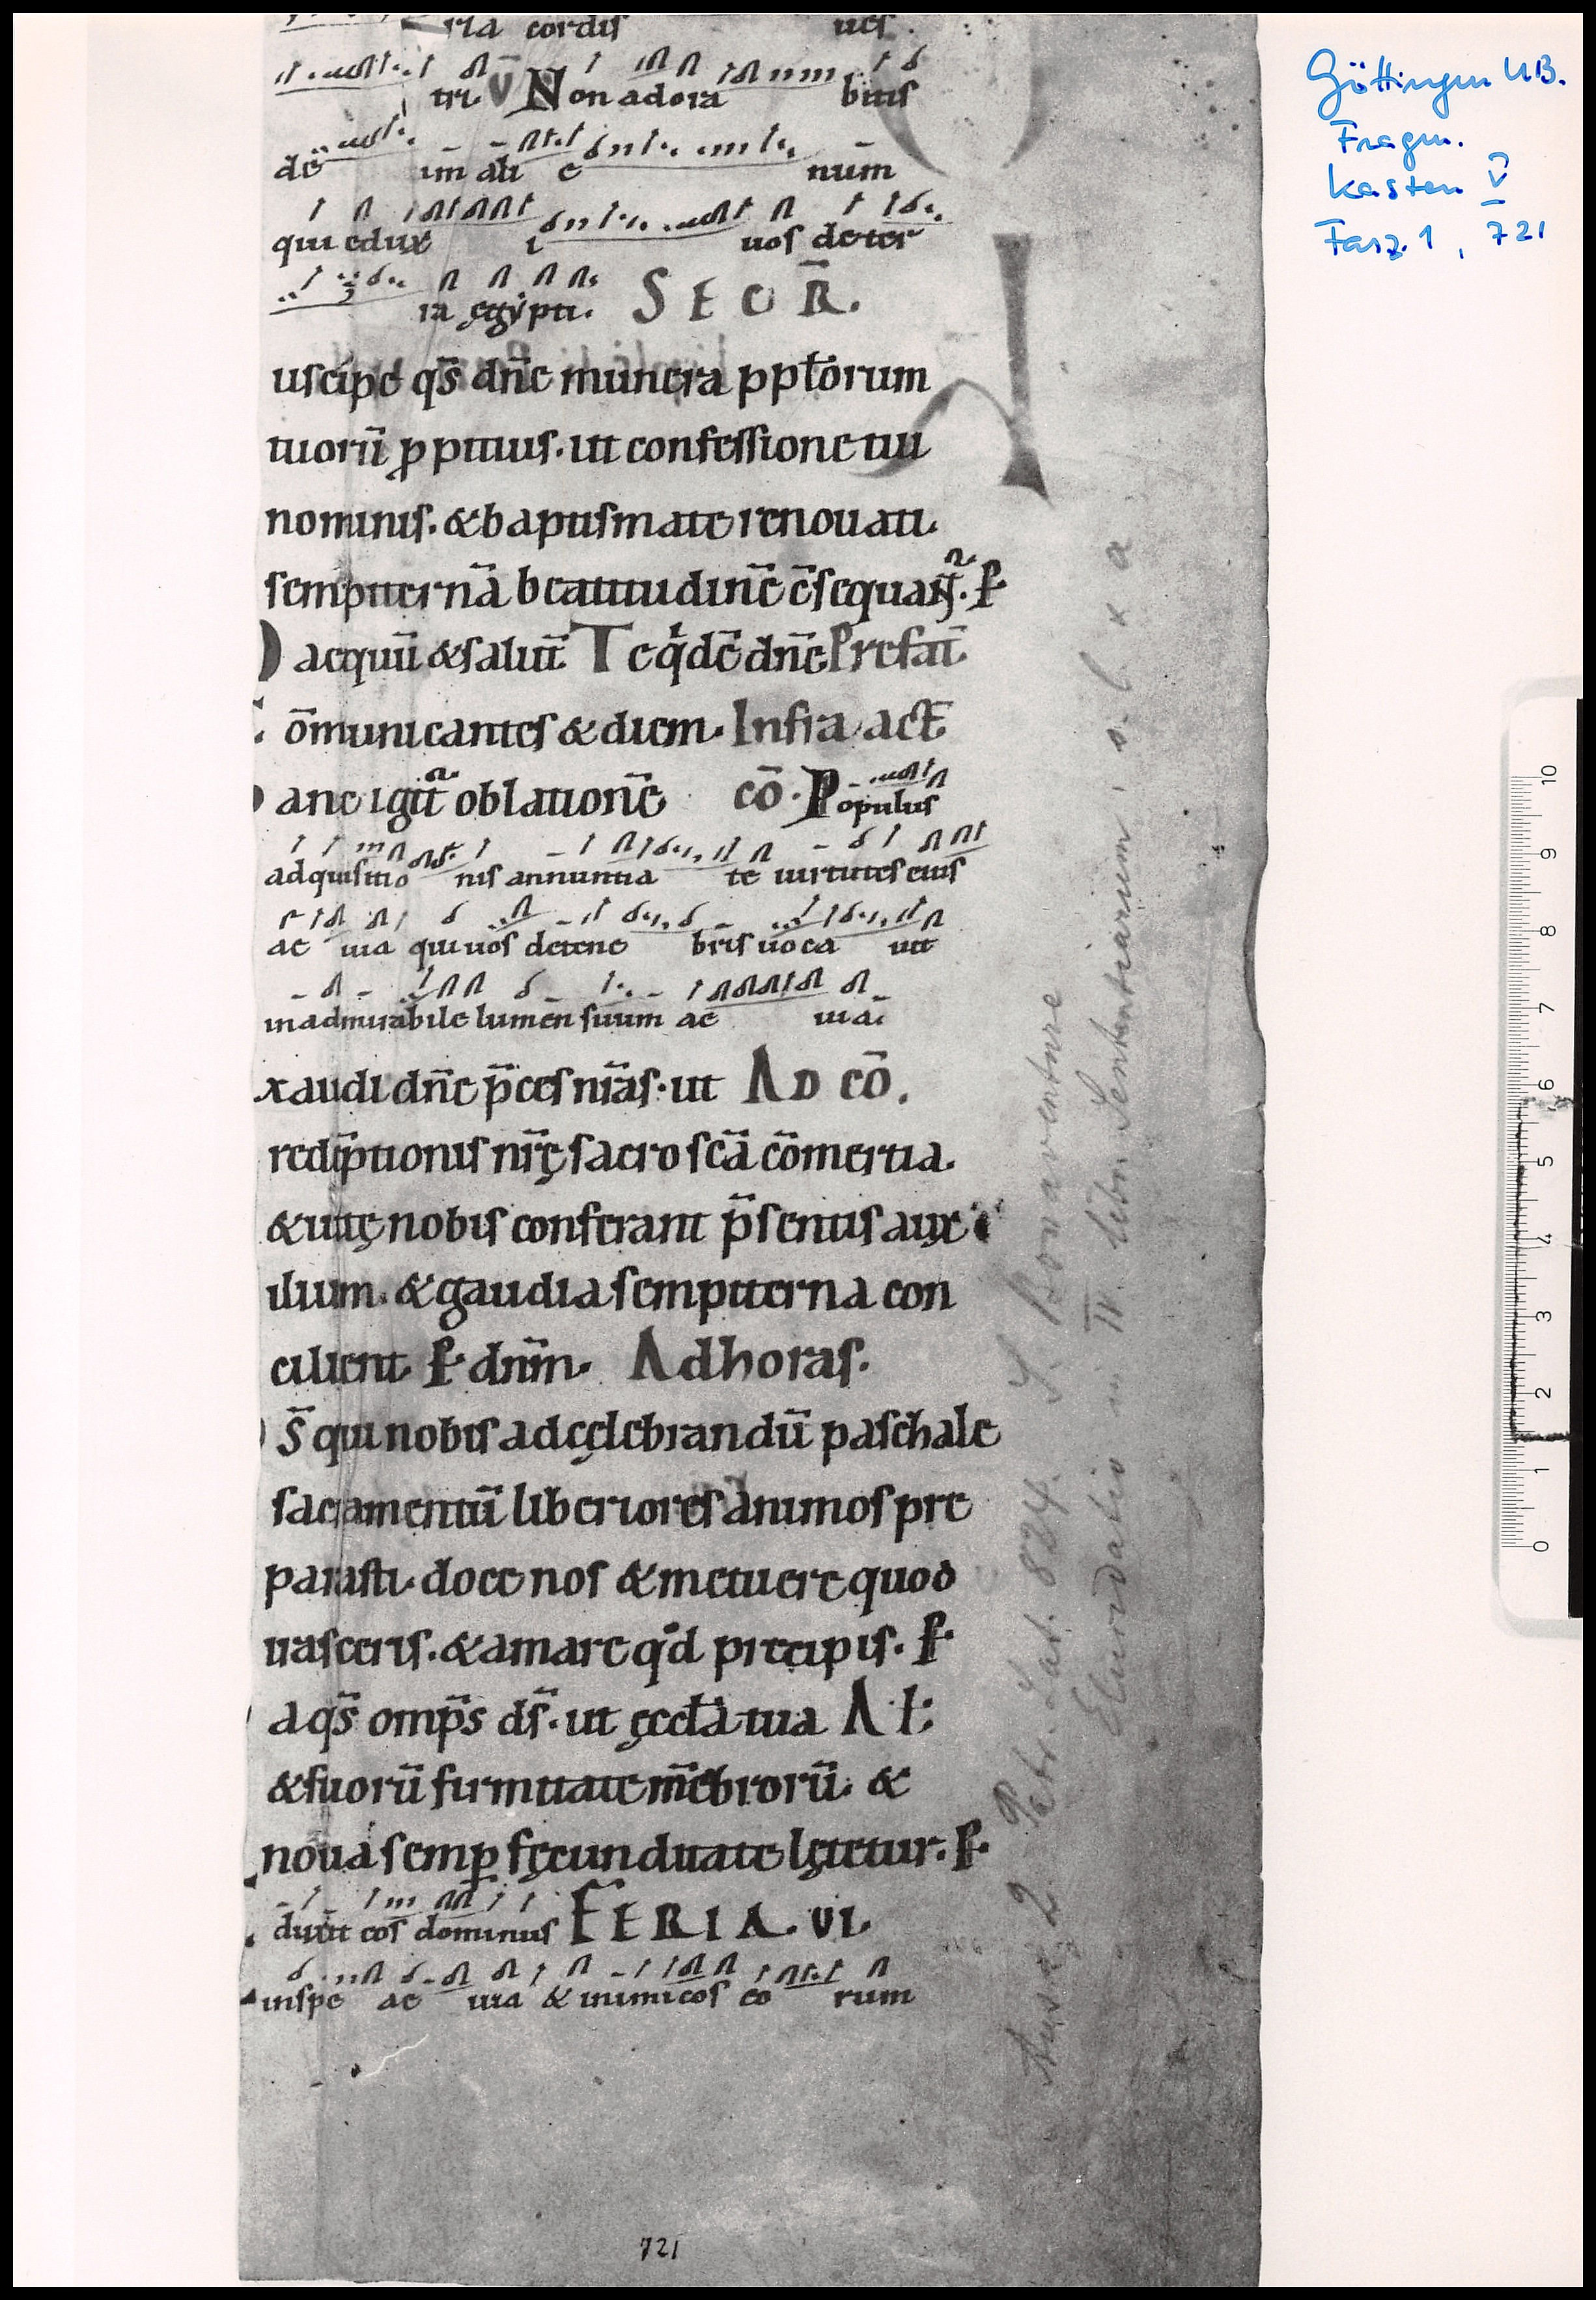 ria cordis ues
tri. V Non adora bitis
dē im ali e num
qui edux i uos de ter
ra ęgypti. SECR̄.
uscipe qs̄ dn̄e munera ppt̄orum
tuorū ꝓpitius. ut confessione tui
nominis. & baptismate renouati.
sempiternā beatitudinē c̄sequant᷑. P̲
aequū & salut̄ Te qͥdē dn̄e Prefat̄
ōmunicantes & diem. Infra act̄
anc igit᷑ oblationē cō. Populus
adquisitio nis annuntia te uirtutes eius
ae uia qui uos de tene bris uoca uit
in admirabile lumen suum ae uia.
xaudi dn̄e p̄ces nr̄as. ut AD CŌ.
redēptionis nr̄ę sacrosc̄a cōmertia.
& uitę nobis conferant p̄sentis aux
ilium. & gaudia sempiterna con
cilient. P̲ dn̄m. Ad horas.
s̄ qui nobis ad cęlebrandū paschale
sacramentū liberiores animos pre
parasti. doce nos & metuere quod
irasceris. & amare qͦd precipis. P̲
a qs̄ omp̄s ds̄. ut ęccl̄a tua Al̄
& suorū firmitate mēbrorū. &
noua semꝑ fęcunditate lętetur. P̲
duxit eos dominus FERIA. VI.
in spe ae uia & inimicos eo rum
721
Göttingen UB.
Fragm.
Kasten V
Fasz. 1, 721
Aus 2 Patr. Lat. 824. S. Bonaventure
Elucidatio in IV. libr. Sententiarum, s. l. x a
0 1 2 3 4 5 6 7 8 9 10